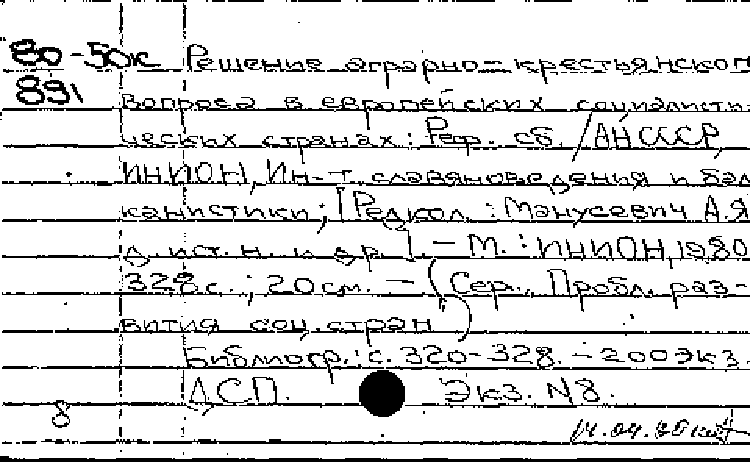 80-50к Решение аграрно-крестьянского
891 вопроса в европейских социалисти-
ческих странах: Реф. сб. / АН СССР,
ИНИОН, Ин-т славяноведения и бал-
канистики; [Редкол.: Манусевич А.Я.
д. ист. н. и др.]. - М.: ИНИОН, 1980
328 с.; 20 см. - (Сер. Пробл. раз-
вития соц. стран)
Библиогр.: с. 320-328. - 200 экз.
ДСП. Экз. N8.
8
14.04.80